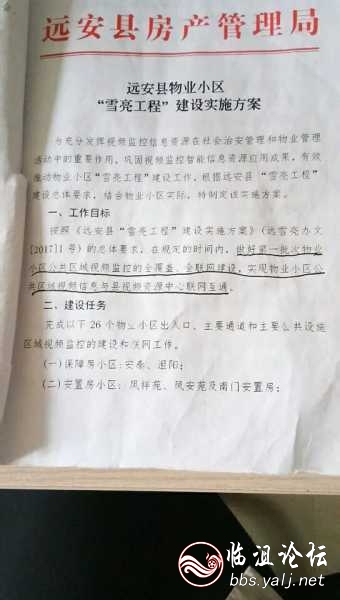 远安县房产管理局
远安县物业小区
“雪亮工程”建设实施方案
为充分发挥视频监控信息资源在社会治安管理和物业管理
活动中的重要作用，巩固视频监控智能信息资源应用成果，有效
推动物业小区“雪亮工程”建设工作，根据远安县“雪亮工程”
建设总体要求，结合物业小区实际，特制定该实施方案。
一、工作目标
按照《远安县“雪亮工程”建设实施方案》（远雪亮办文
[2017]1号）的总体要求，在规定的时间内，做好第一批次物业
小区公共区域视频监控的全覆盖、全联网建设，实现物业小区公
共区域视频信息与县视频资源中心联网互通。
二、建设任务
完成以下26个物业小区出入口、主要通道和主要公共设施
区域视频监控的建设和联网工作。
（一）保障房小区：安泰、沮阳；
（二）安置房小区：凤祥苑、凤安苑及南门安置房；
临沮论坛
bbs.yalj.net